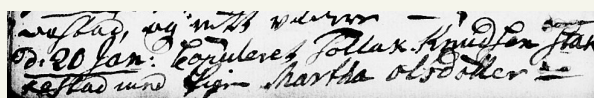 og
d: 20 Jan: Copuleret Tollak Knudsen Stak
kestad med Pigen Martha Olsdotter